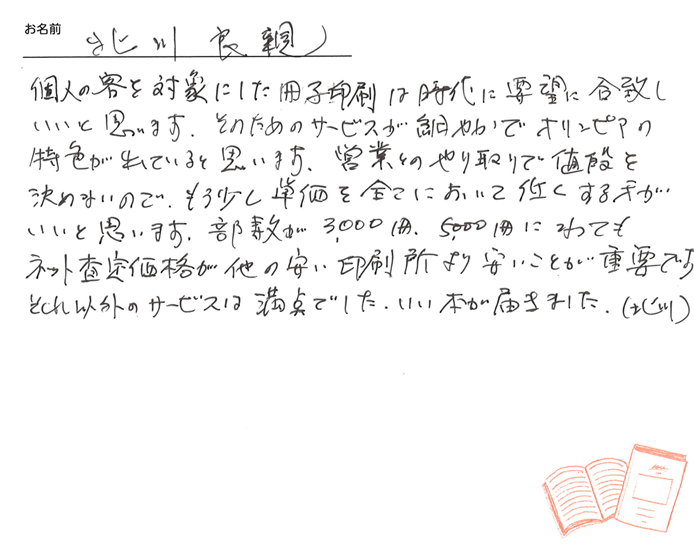 お名前 北川 良親
個人の客を対象にした冊子印刷は時代に要望に合致し
いいと思います。そのためのサービスが細やかでオリンピアの
特色が出ていると思います。営業とのやり取りで値段を
決めないので、もう少し単価を全てにおいて低くする方が
いいと思います。部数が3,000冊、5,000冊になっても
ネット査定価格が他の安い印刷所より安いことが重要です
それ以外のサービスは満点でした。いい本が届きました。(北川)